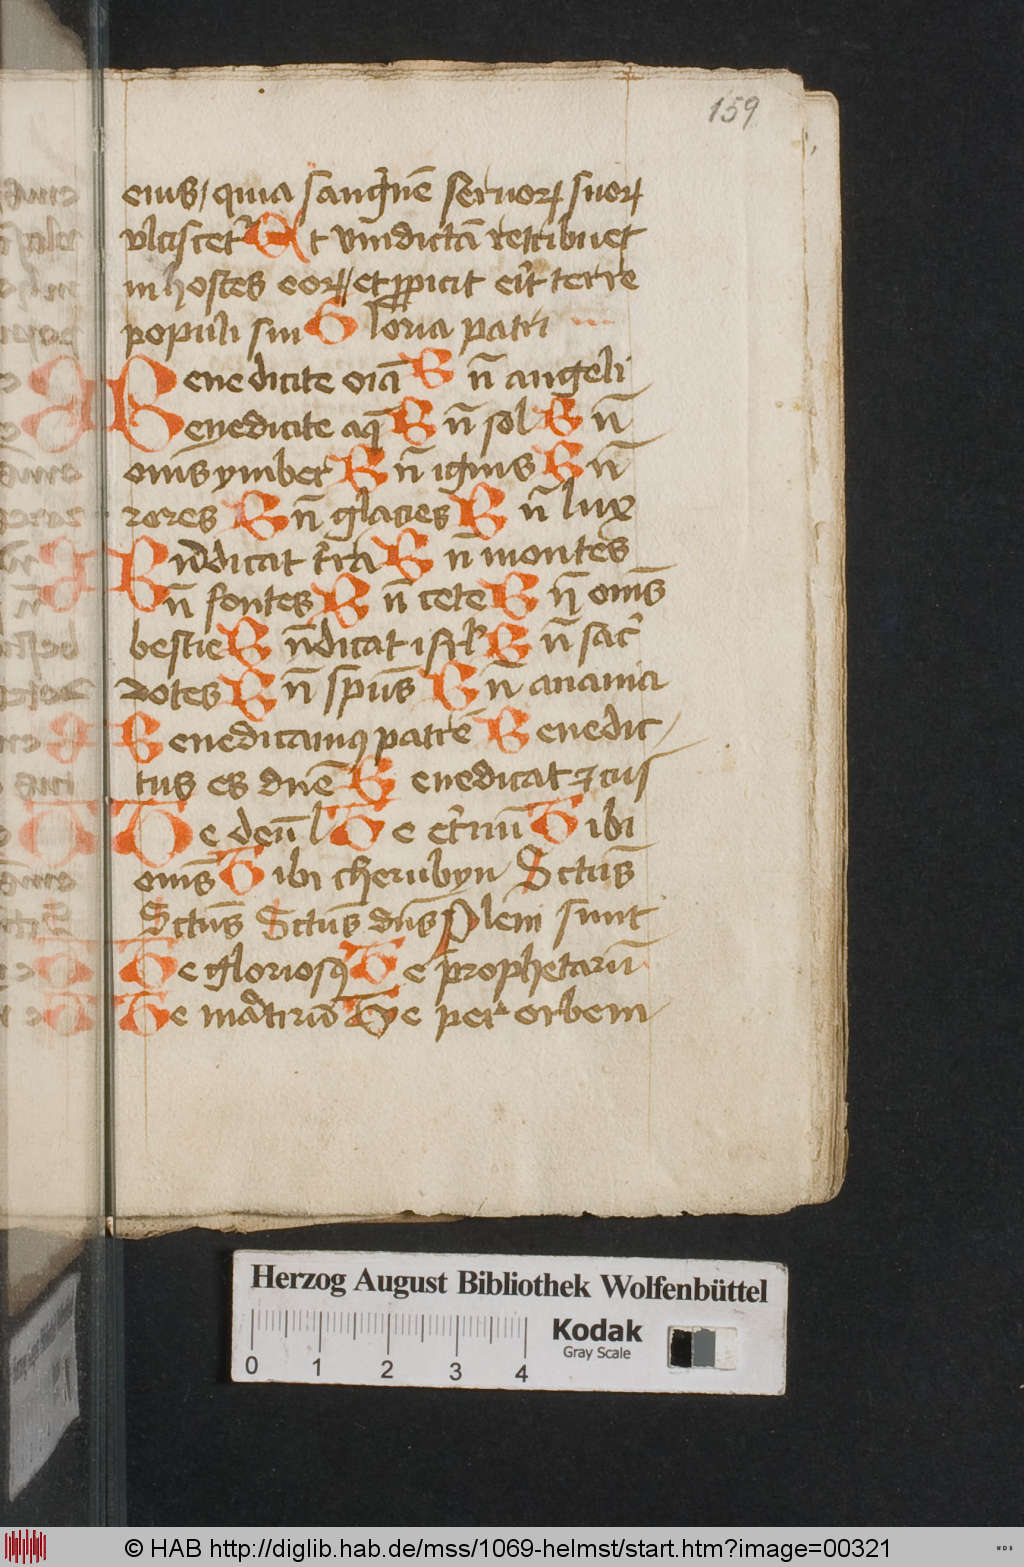 159
eius / quia sangwinē seruoꝝ suoꝝ
vlciscetᷣ Et vīndictā retribuet
in hostes eoꝝ / et ꝓpicit erit terre
populi sui Gloria patri
Benedicite oīa B n̄ angeli
Benedicite aq̄ B n̄ sol B n̄
om̄s ymber B n̄ ignis B n̄
rores B n̄ glacies B n̄ lux
Bn̄dicat tᷣra B n̄ montes
B n̄ fontes B n̄ cete B n̄ om̄s
bestie B n̄dicat isrl̄ B n̄ sacᷣ
dotes B n̄ sp̄us B n̄ anania
Benedicamꝰ patrē Benedic
tus es dn̄e Benedicat
Te deū l Te etᷣnū Tibi
om̄s Tibi cherubyn Sctūs
Sctūs Sctūs dn̄s Pleni sunt
Te gloriosꝰ Te prophetarū
Te martirū Te per orbem
Herzog August Bibliothek Wolfenbüttel
Kodak
Gray Scale
0 1 2 3 4
© HAB http://diglib.hab.de/mss/1069-helmst/start.htm?image=00321